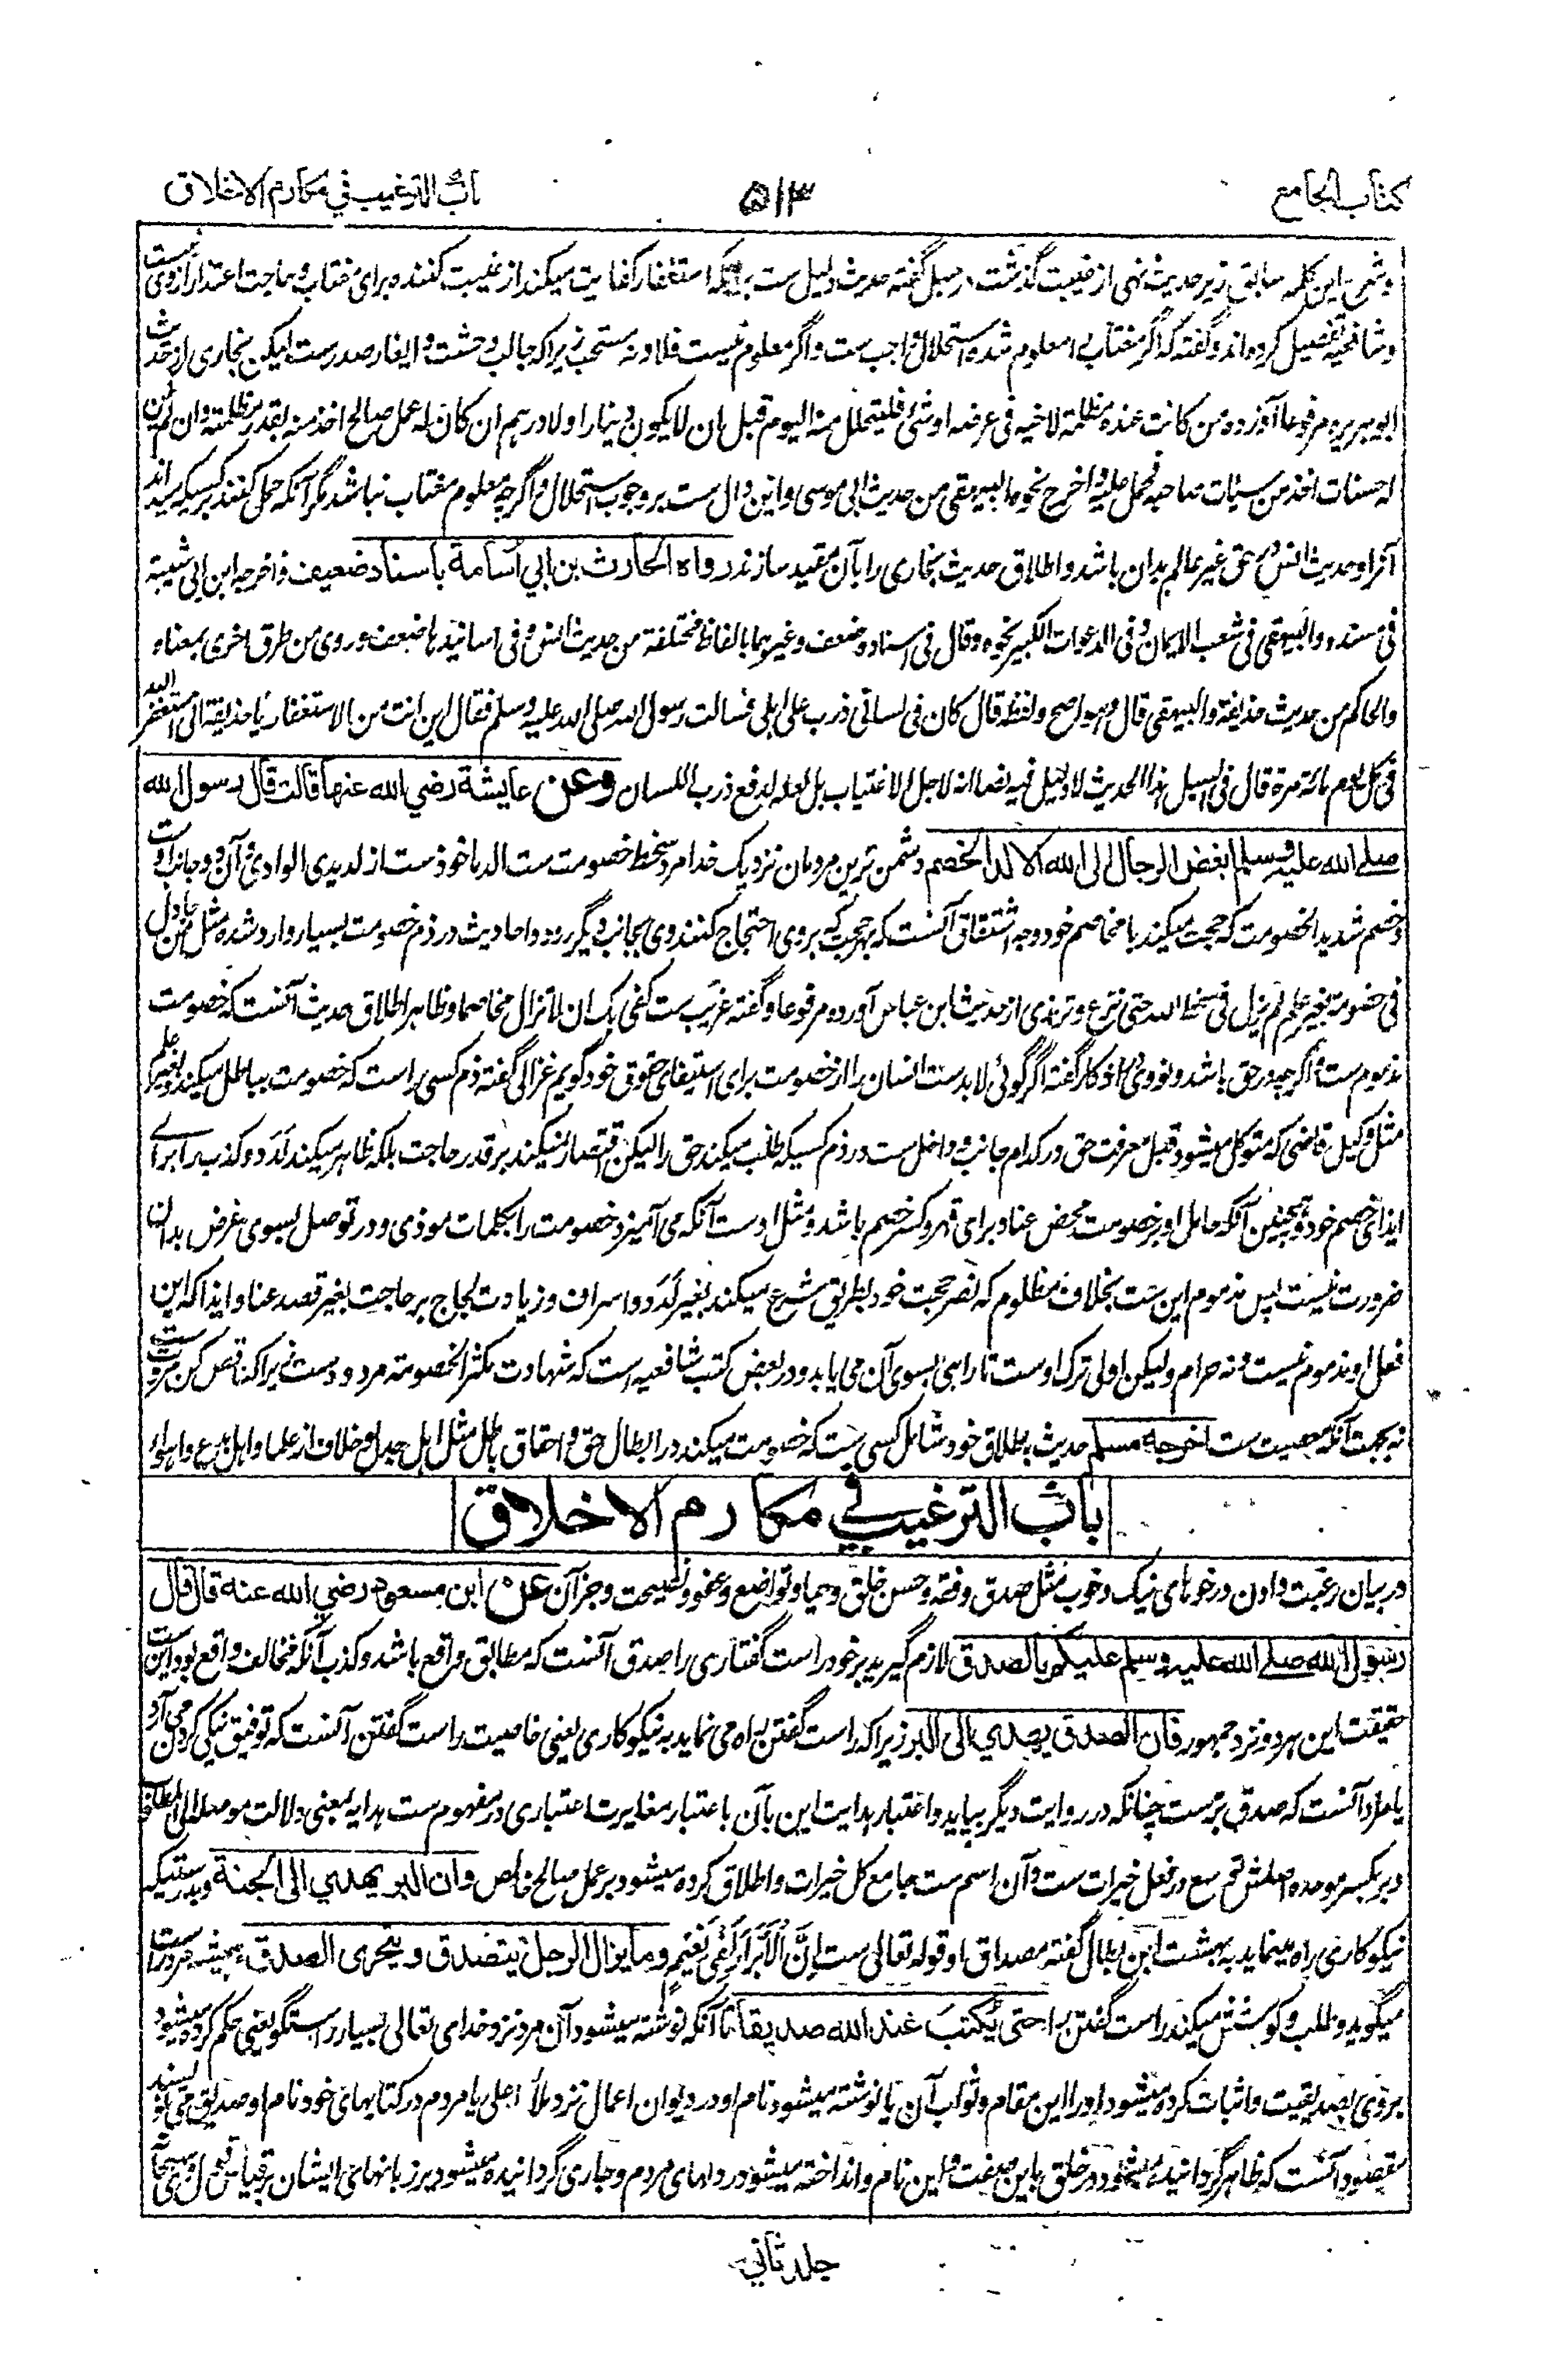 كتاب الجامع
۵۱۳
باب الترغيب في مكارم الاخلاق
وشرح این کلمه سابق زیر حدیث نهی از غیبت گذشت در سبل گفته حدیث دلیل ست برآنکه استغفار کفایت میکند از غیبت کننده برای مغتاب و حاجت اعتذار از وی نیست
وشافعیه تفصیل کرده اند و گفته که اگر مغتاب را معلوم شده استحلال واجب ست واگر معلوم نیست فلا ونه مستحب زیرا که جالب وحشت و ایغار صدر ست لیکن بخاری از حدیث
ابو هریره مرفوعا آورده من کانت عنده مظلمة لاخیه فی عرضه او شئ فلیتحلل منه الیوم قبل ان لا یکون دینار ولا درهم ان کان له عمل صالح اخذ منه بقدر مظلمته وان لم یکن
له حسنات اخذ من سیئات صاحبه فحمل علیه واخرج نحوها البیهقی من حدیث ابی موسی واین دال ست بر وجوب استحلال واگرچه معلوم مغتاب نباشد مگر آنکه حمل کنند بر کسیکه رسیده اند
آنرا و حدیث انس در حق غیر عالم بدان باشد واطلاق حدیث بخاری را بآن مقید سازند رواه الحارث بن ابي اسامة باسناد ضعيف واخرجه ابن ابی شیبة
فی مسنده والبیهقی فی شعب الایمان وفی الدعوات الکبیر نحوه وقال فی اسناده ضعف وغیرهما بالفاظ مختلفة من حدیث انس وفی اسانیدها ضعف وروی من طرق اخری بمعناه
والحاکم من حدیث حذیفة والبیهقی قال وهو اصح ولفظه قال کان فی لسانی ذرب علی اهلی فسالت رسول الله صلی الله علیه وسلم فقال این انت من الاستغفار یا حذیفة انی استغفر الله
فی کل یوم مائة مرة قال فی السبل هذا الحدیث لا دلیل فیه نصا انه لاجل الاغتیاب بل لعله لدفع ذرب اللسان وعن عايشة رضي الله عنها قالت قال رسول الله
صلى الله عليه وسلم ابغض الرجال الى الله الالد الخصم دشمن ترین مردمان نزدیک خدا مرد سخت خصومت ست الد ماخوذ ست از لدیدی الوادی وآن دو جانب اوست
وخصم شدید الخصومت که حجت میکند با مخاصم خود ووجه اشتقاق آنست که بهر حجت که بر وی احتجاج کنند وی بجانب دیگر رود و احادیث در ذم خصومت بسیار وارد شده مثل من جادل
فی خصومة بغیر علم لم یزل فی سخط الله حتی ینزع وترمذی از حدیث ابن عباس آورده مرفوعا وگفته غریب ست کفی بک ان لا تزال مخاصما وظاهر اطلاق حدیث آنست که خصومت
مذموم ست اگرچه در حق باشد ونووی در اذکار گفته اگر گوئی لابد ست انسان را از خصومت برای استیفای حقوق خود گویم غزالی گفته ذم کسی راست که خصومت بباطل میکند وبغیر علم
مثل وکیل قاضی که متوکل میشود قبل معرفت حق در کدام جانب و داخل ست در ذم کسیکه طلب میکند حق را لیکن اقتصار نمیکند بر قدر حاجت بلکه ظاهر میکند لدد وکذب را برای
ایذای خصم خود وهمچنین آنکه حامل او بر خصومت محض عناد برای قهر وکسر خصم باشد ومثل اوست آنکه می آمیزد خصومت را بکلمات موذی ودر توصل بسوی غرض بدان
ضرورت نیست پس مذموم این ست بخلاف مظلوم که نصر حجت خود بطریق شرع میکند بغیر لدد واسراف وزیادت لجاج بر حاجت بغیر قصد عناد وایذا که این
فعل او مذموم نیست ونه حرام ولیکن اولی ترک اوست تا راهی بسوی آن می یابد ودر بعض کتب شافعیه است که شهادت مکثر الخصومة مردود ست زیرا که ناقص کن مروت ست
نه بجهت آنکه معصیت ست اخرجه مسلم حدیث باطلاق خود شامل کسی ست که خصومت میکند در ابطال حق واحقاق باطل مثل اهل جدل وخلاف از علما واهل بدع واهواء
باب الترغيب في مكارم الاخلاق
در بیان رغبت دادن در خوهای نیک وخوب مثل صدق وفقه وحسن خلق وحیا وتواضع وعفو ونصیحت وجز آن عن ابن مسعود رضي الله عنه قال قال
رسول الله صلى الله عليه وسلم عليكم بالصدق لازم گیرید بر خود راست گفتاری را صدق آنست که مطابق واقع باشد وکذب آنکه مخالف واقع بود این ست
حقیقت این هر دو نزد جمهور فان الصدق يهدي الى البر زیرا که راست گفتن راه می نماید به نیکوکاری یعنی خاصیت راست گفتن آنست که توفیق نیکی کردن می آرد
یا مراد آنست که صدق بر ست چنانکه در روایت دیگر بیاید واعتبار هدایت این بآن باعتبار مغایرت اعتباری در مفهوم ست هدایه بمعنی دلالت موصله الی المطلوب
وبر بکسر موحده اصلش توسع در فعل خیرات ست وآن اسم ست جامع کل خیرات واطلاق کرده میشود بر عمل صالح خالص وان البر يهدي الى الجنة وبدرستیکه
نیکوکاری راه مینماید به بهشت ابن بطال گفته مصداق او قوله تعالی ست إن الأبرار لفي نعيم وما يزال الرجل يتصدق ويتحرى الصدق همیشه مرد راست
میگوید وطلب وکوشش میکند راست گفتن را حتى يكتب عند الله صديقا تا آنکه نوشته میشود آن مرد نزد خدای تعالی بسیار راستگو یعنی حکم کرده میشود
بر وی بصدیقیت واثبات کرده میشود او را این مقام وثواب آن یا نوشته میشود نام او در دیوان اعمال نزد ملأ اعلی یا مردم در کتابهای خود نام او صدیق می نویسند
مقصود آنست که ظاهر گردانیده میشود در خلق باین صفت واین نام وانداخته میشود در دلهای مردم وجاری گردانیده میشود بر زبانهای ایشان بر قیاس
جلد ثاني